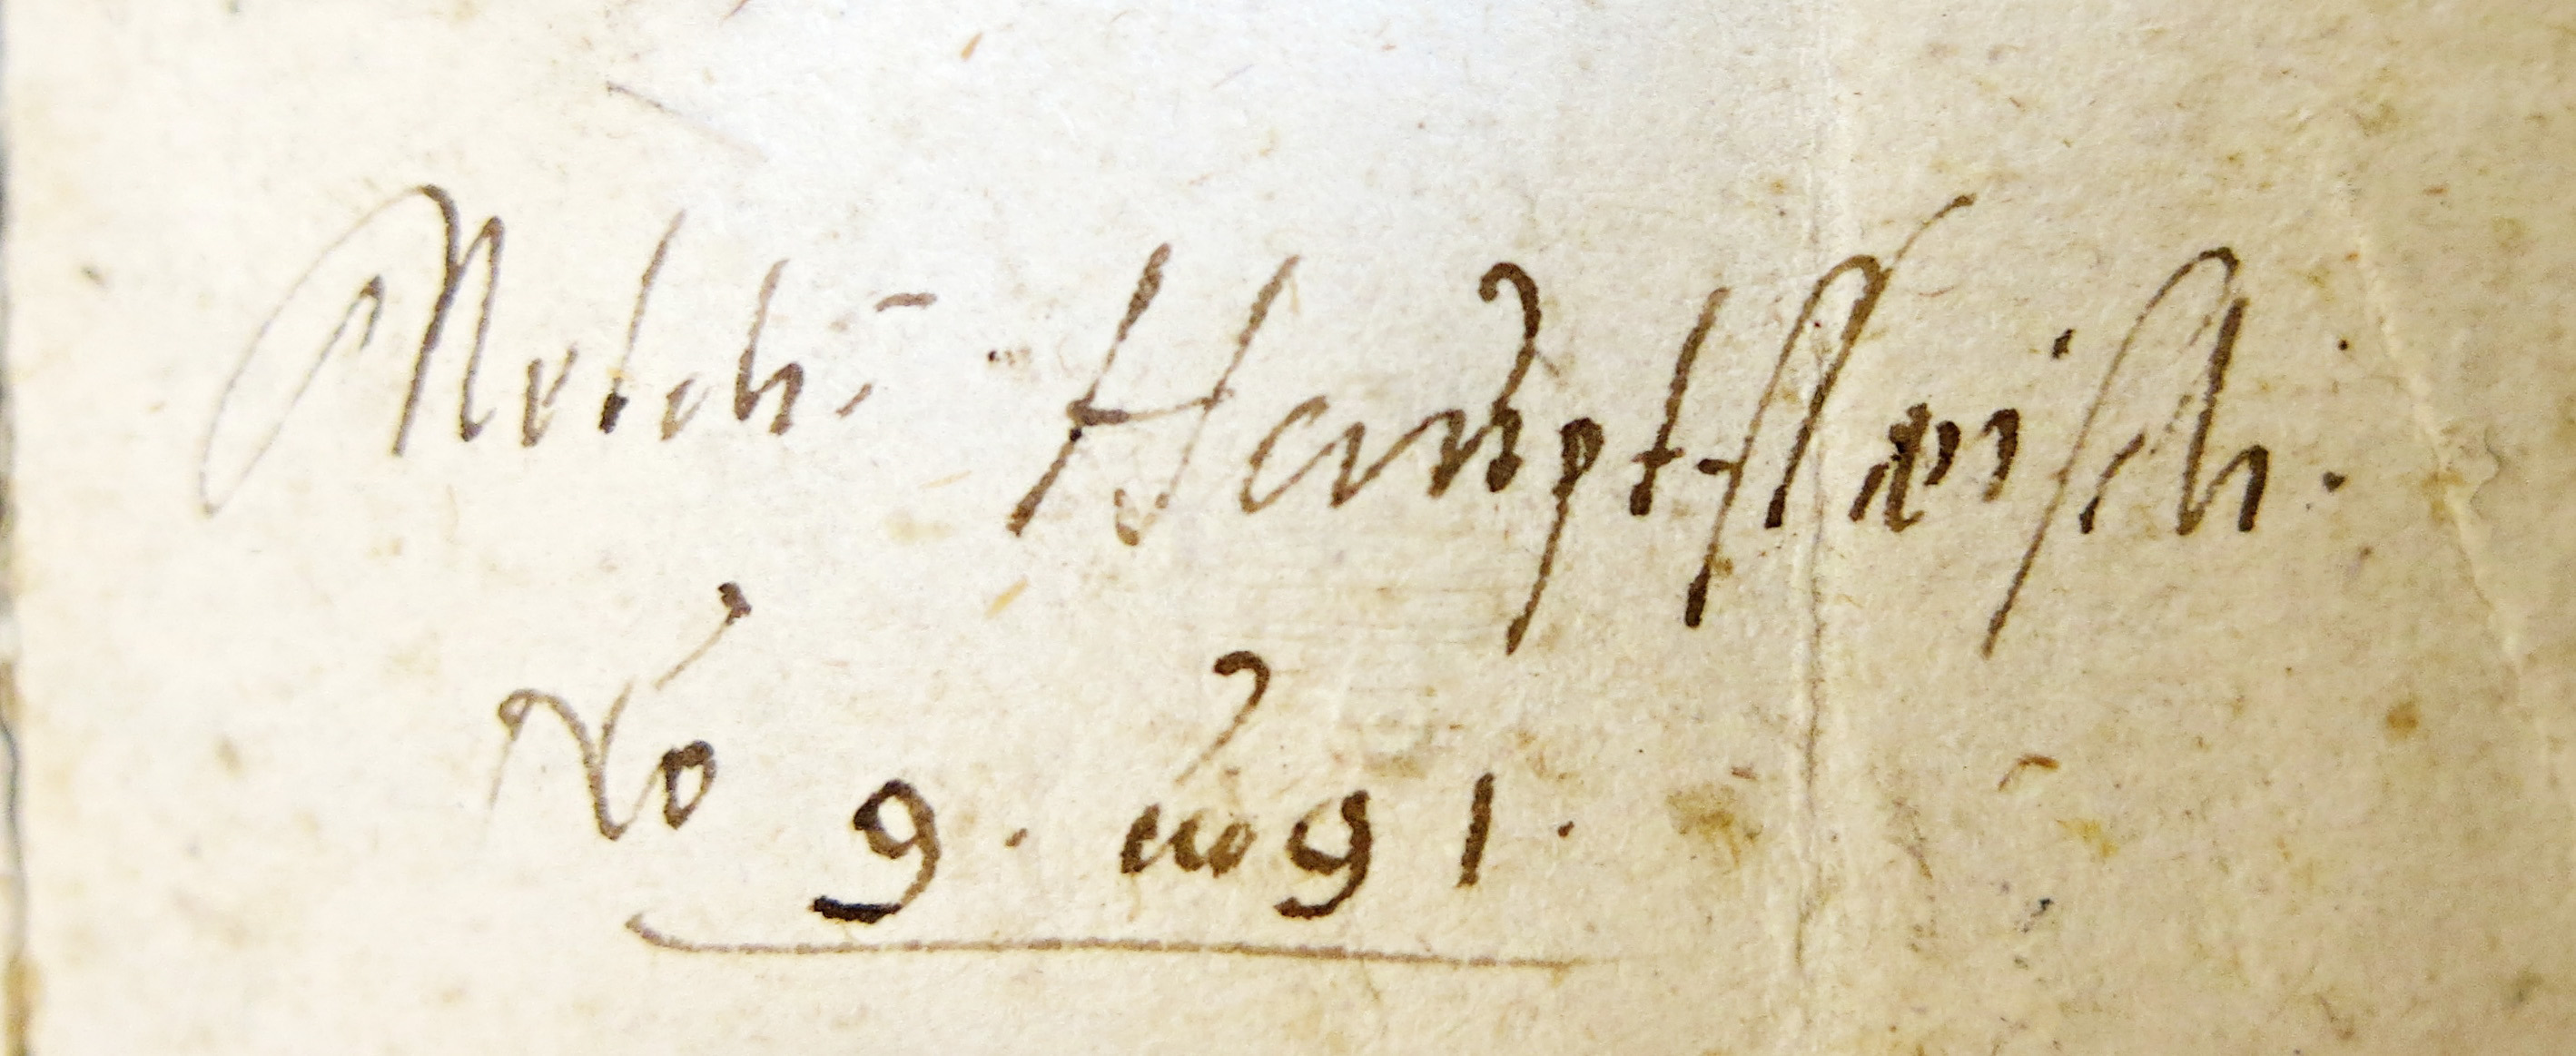 Melch: Hauptfleisch.
No 9. 91.